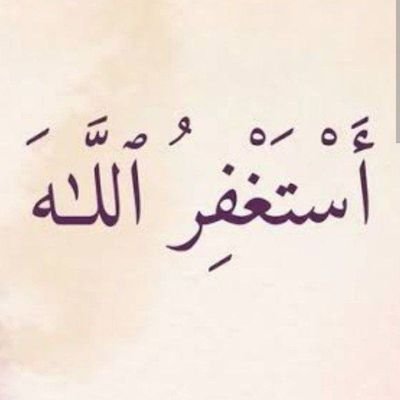 أَسْتَغْفِرُ ٱللَّٰهَ